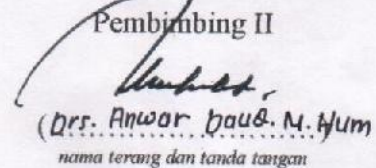 Pembimbing II
(Drs. Anwar Daud. M. Hum
nama terang dan tanda tangan